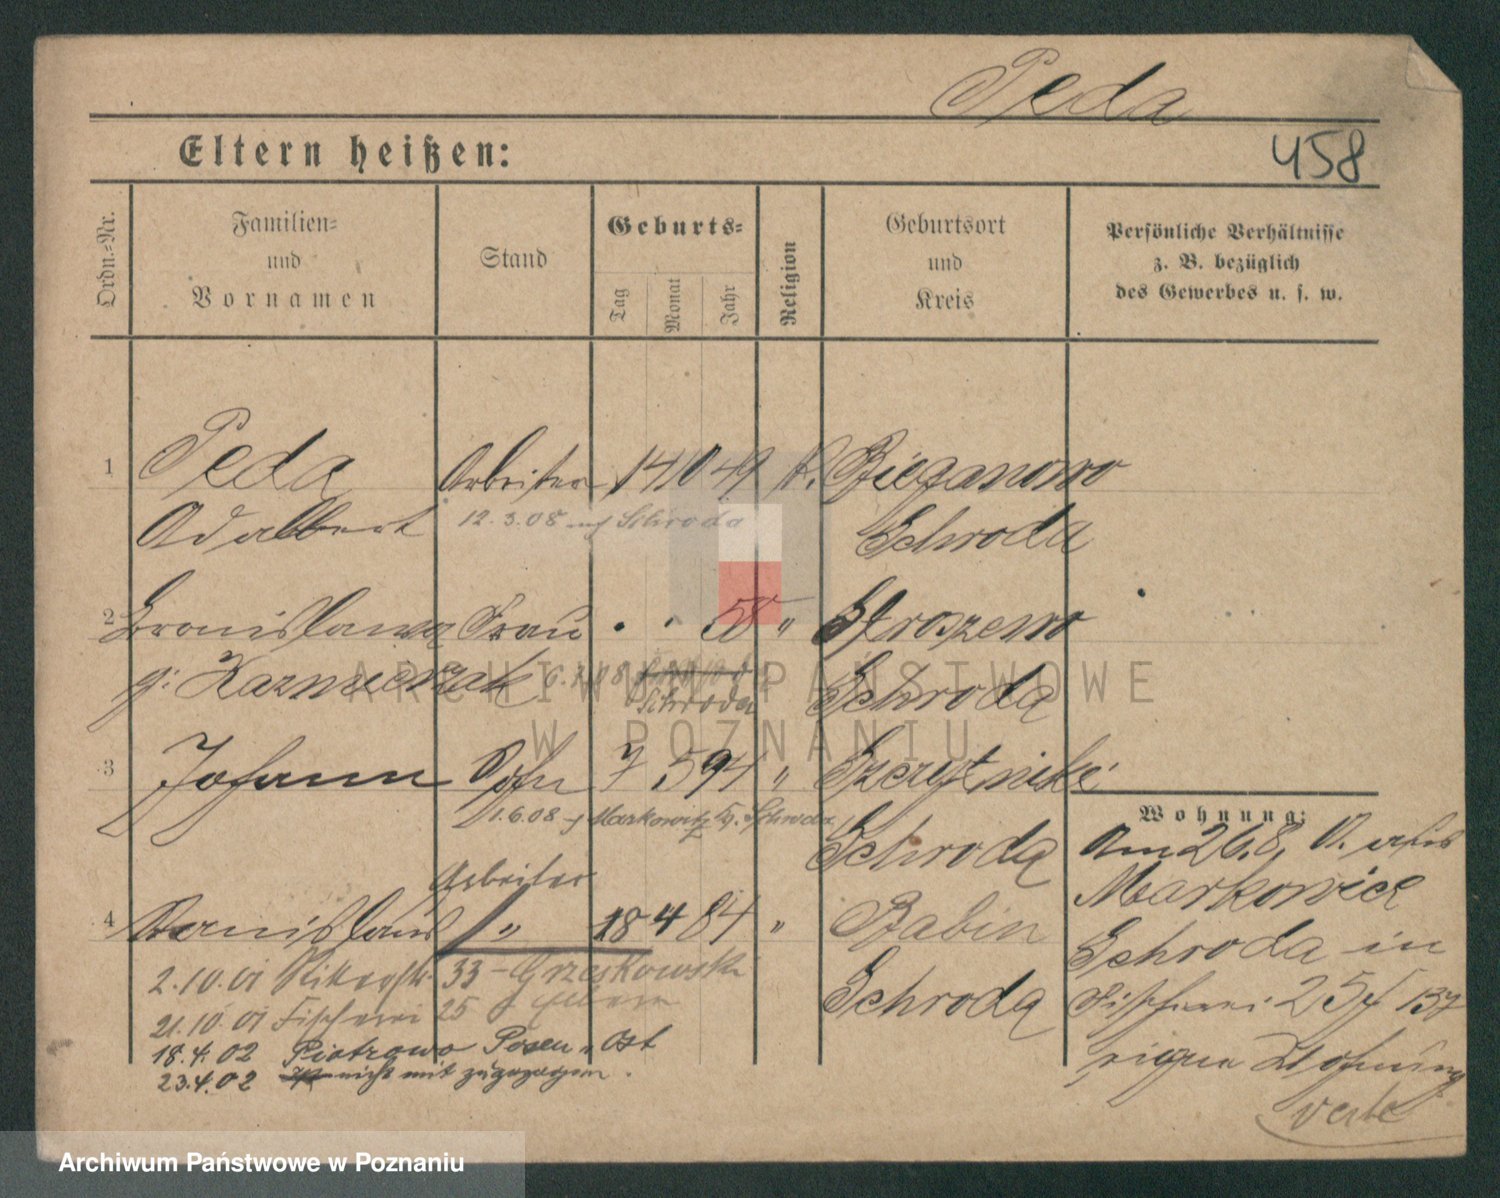 Peda
Eltern heißen:
458
Ordn.=Nr.
Familien=
und
Vornamen
Stand
Geburts=
Tag
Monat
Jahr
Religion
Geburtsort
und
Kreis
Persönliche Verhältnisse
z. B. bezüglich
des Gewerbes u. s. w.
1 Peda Arbeiter 14 10 49 k. Bieganowo
Adalbert 12.3.08 Schroda Schroda
2 Bronislawa Frau 50 " Stroszewo
g: Kazmierczak Schroda Schroda
3 Johann Sohn 7 5 94 "
1.6.08 Markowitz Schroda
Schroda
Wohnung:
Am 26.8. aus
Markowice
Schroda in
Fischerei 25
eigne Wohnung
verte
Arbeiter
4 Stanislaus " 18 4 84 " Babin
Schroda
2.10.01 33 - Grzeskowski
21.10.01 Fischerei 25 Eltern
18.4.02 Piotrowo Posen Ost
23.4.02 nicht mit zugezogen.
ARCHIWUM PAŃSTWOWE
W POZNANIU
Archiwum Państwowe w Poznaniu